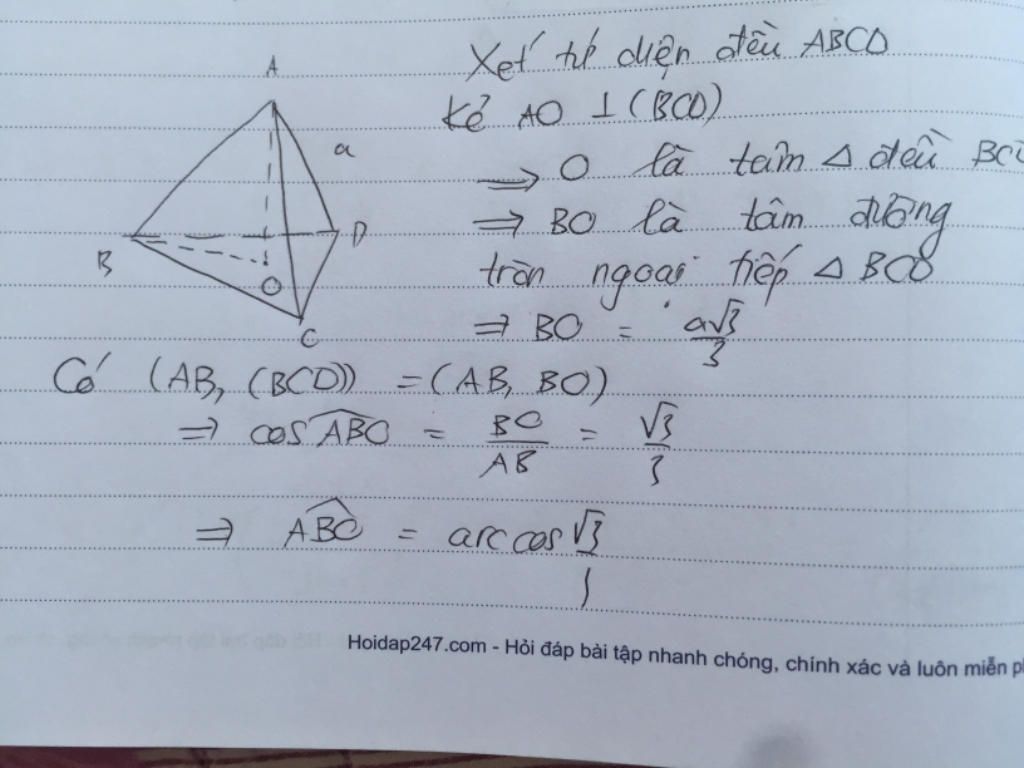 A
a
B
D
O
C
Xét tứ diện đều ABCD
Kẻ AO ⊥ (BCD)
⇒ O là tâm Δ đều BCD
⇒ BO là tâm đường
tròn ngoại tiếp Δ BCD
⇒ BO = a√3/3
Có (AB, (BCD)) = (AB, BO)
⇒ cos ABO = BO/AB = √3/3
⇒ ABO = arccos √3/3
Hoidap247.com - Hỏi đáp bài tập nhanh chóng, chính xác và luôn miễn ph